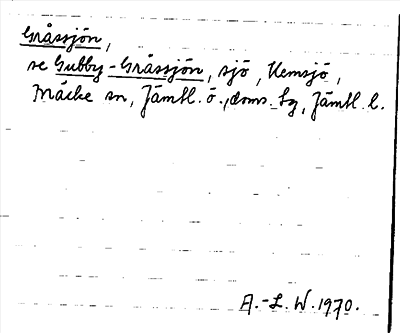 Gråssjön,
se Gubby-Gråssjön, sjö, Hemsjö,
Mäcke sn, Jämtl. ö., doms. sg, Jämtl. l.
A.-L. W. 1970.